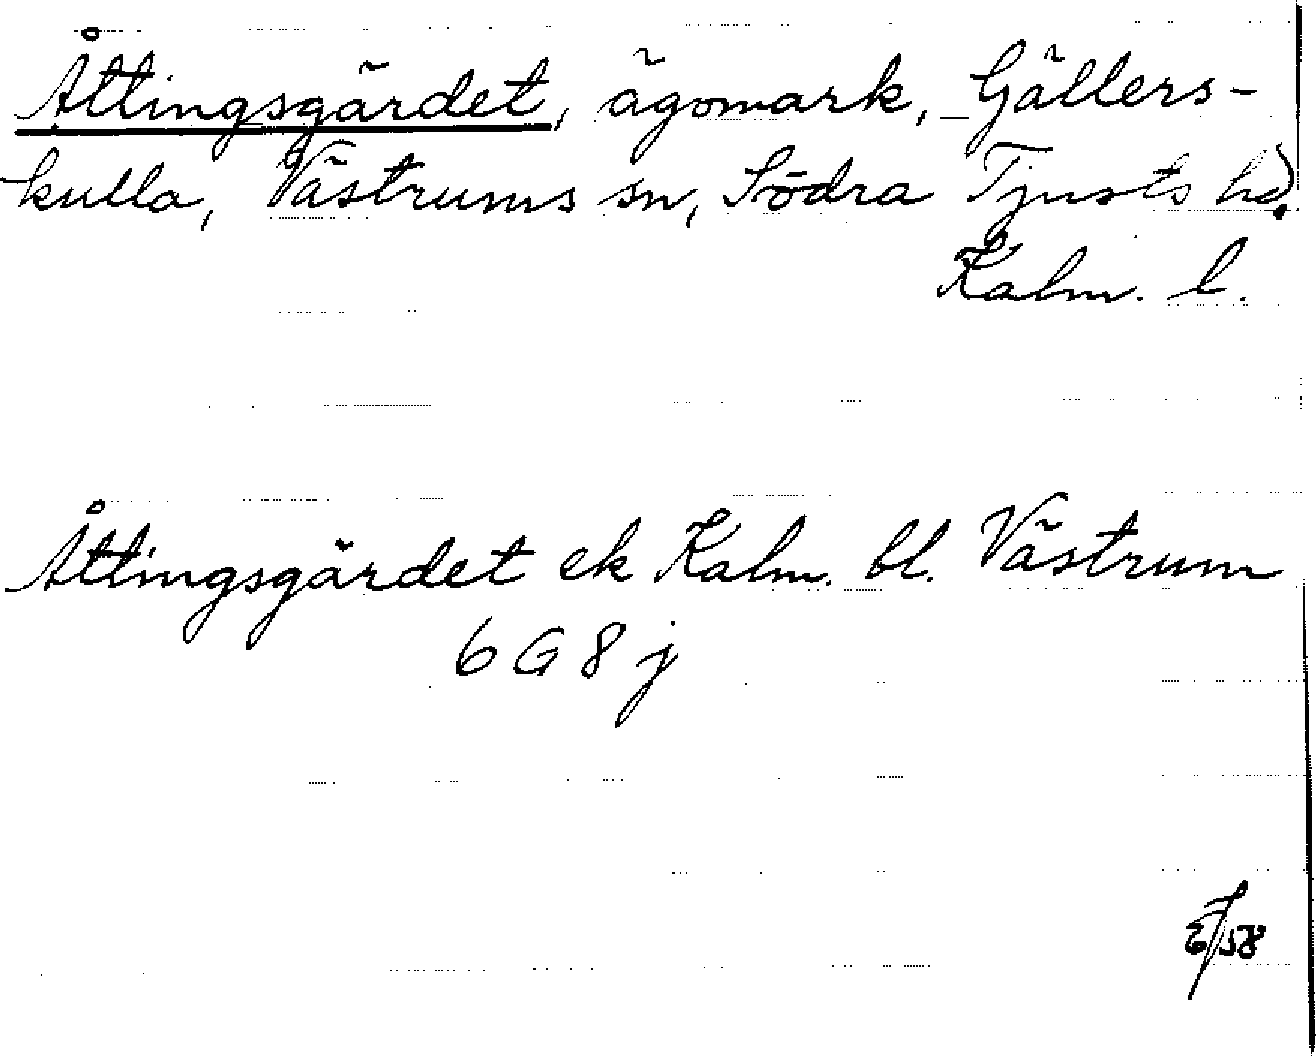 Åttingsgärdet, ägomark, Gällers-
kulla, Västrums sn, Södra Tjusts hd.
Kalm. l.
Åttingsgärdet ek Kalm. bl. Västrum
6 G 8 j